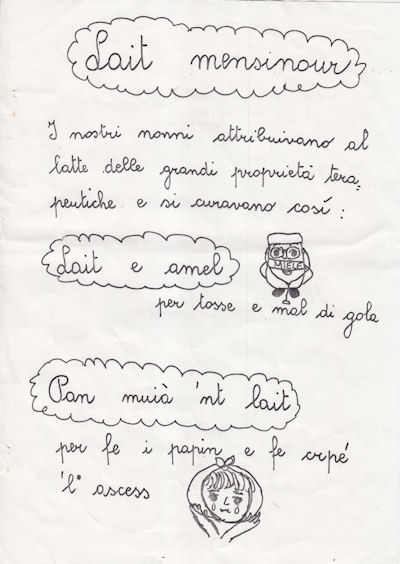 Lait mensinour
I nostri nonni attribuivano al
latte delle grandi proprietà tera=
peutiche e si curavano così:
Lait e amel
MIELE
per tosse e mal di gola
Pan muià 'nt lait
per fe i papin e fe crpé
'l° ascess